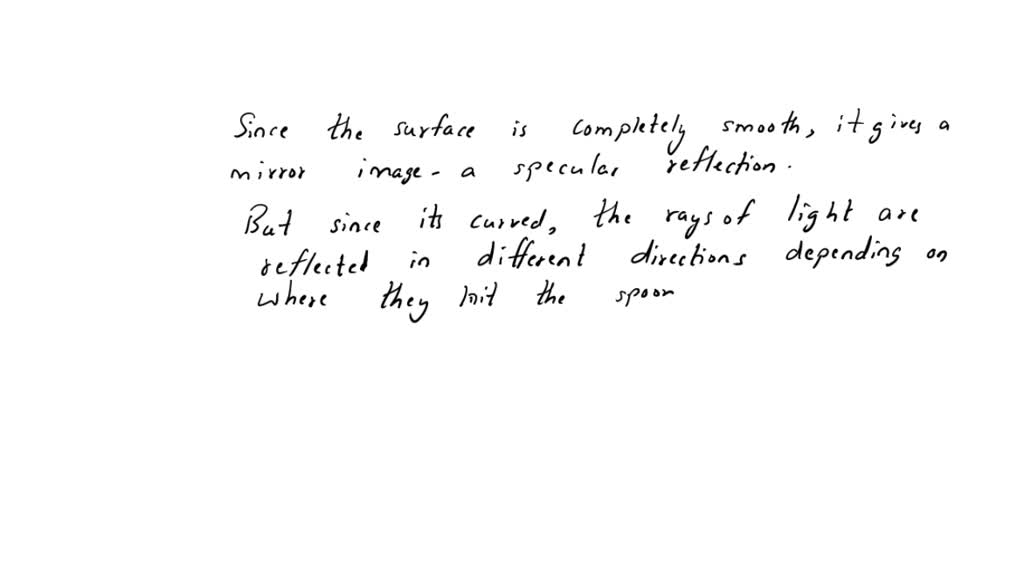 Since the surface is completely smooth, it gives a
mirror image - a specular reflection.
But since its curved, the rays of light are
reflected in different directions depending on
where they hit the spoon